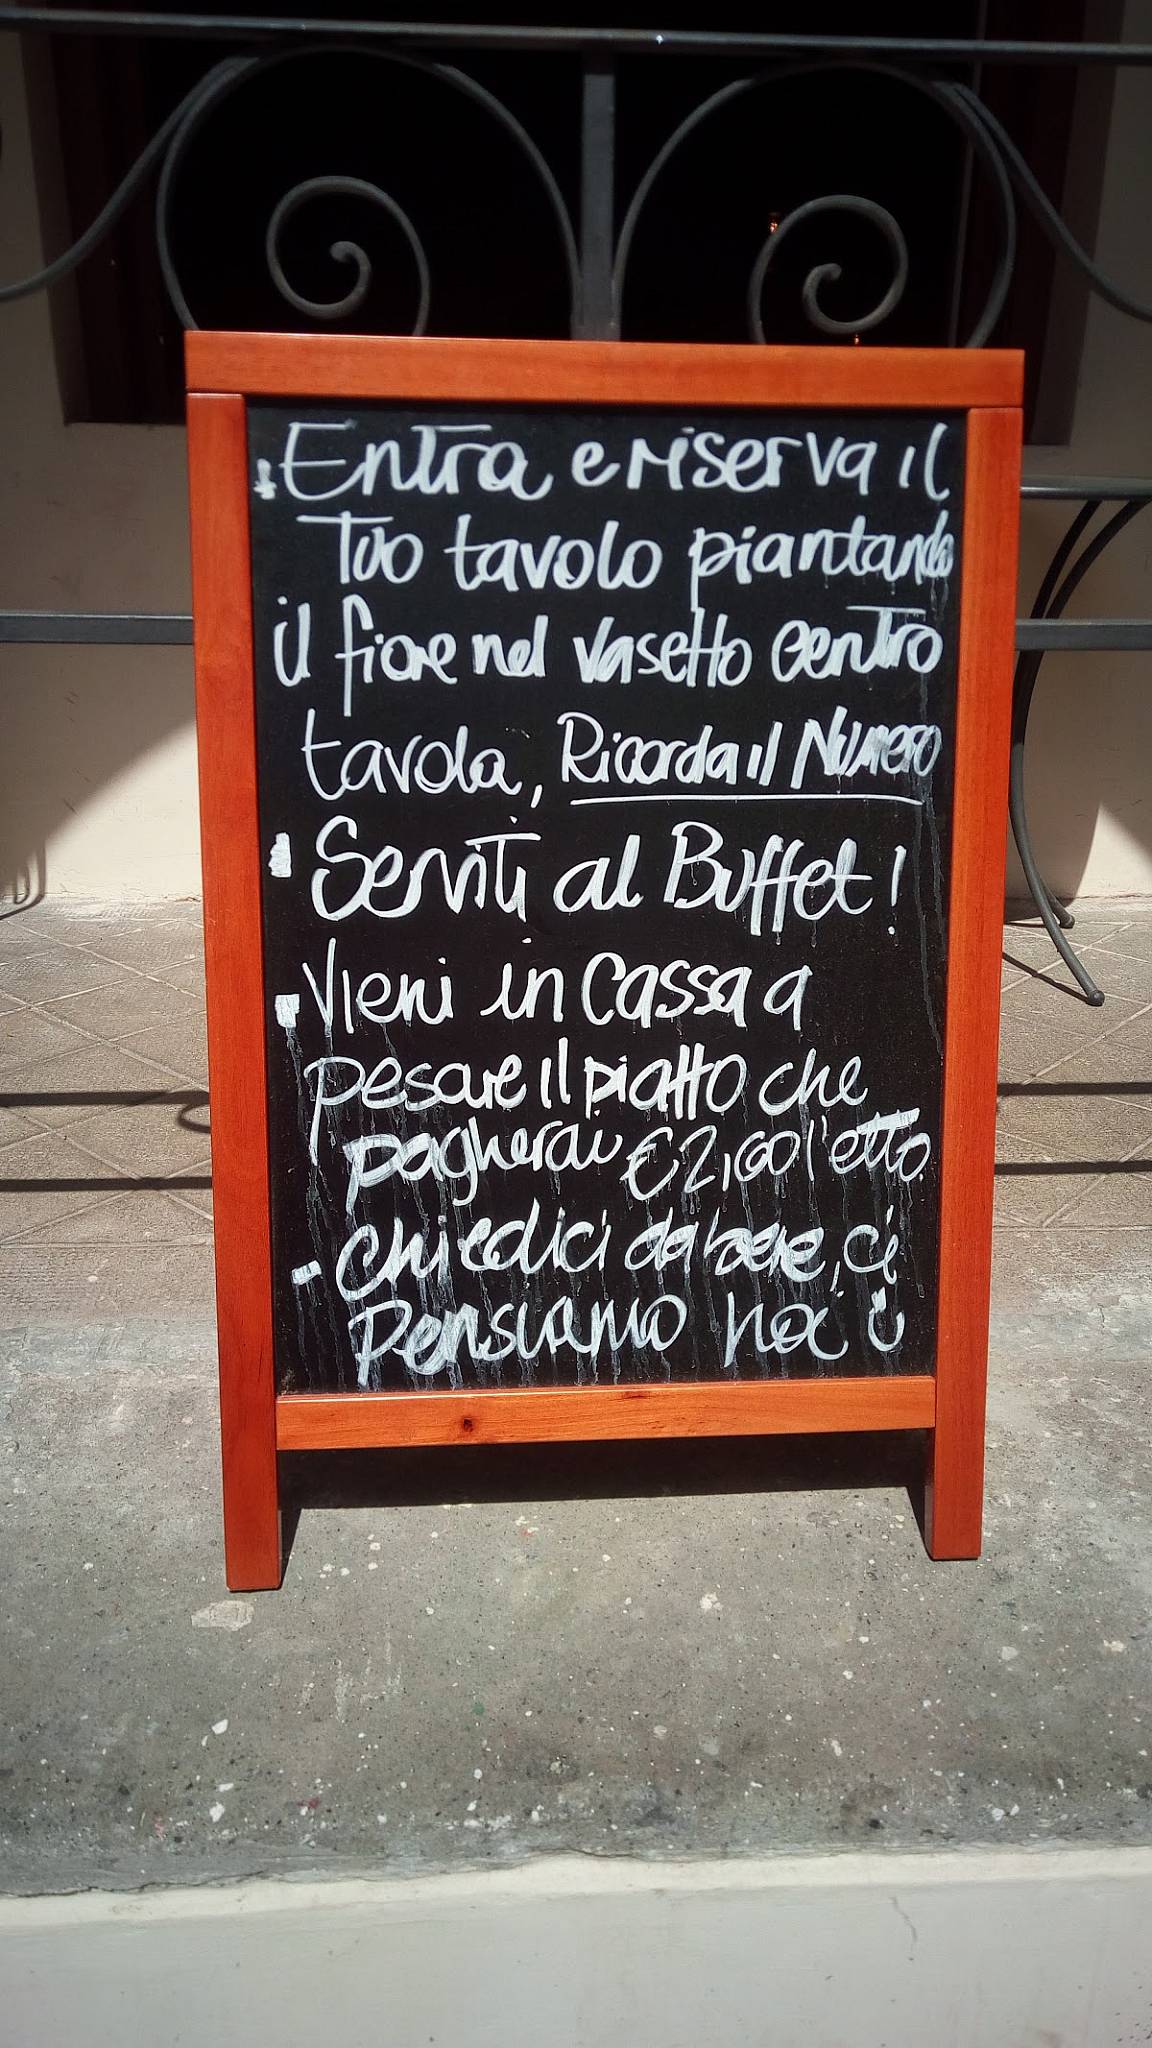 Entra e riserva il
Tuo tavolo piantando
il fiore nel vasetto centro
tavola, Ricorda il Numero
Serviti al Buffet!
Vieni in Cassa a
pesare il piatto che
pagherai €2,60 l'etto.
- chiedici da bere, ci
pensiamo noi